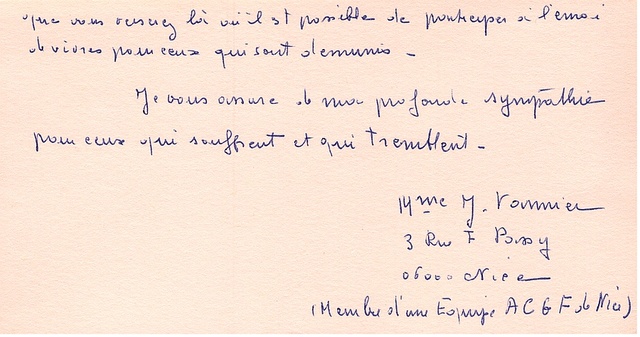 que vous versiez là où il est possible de participer à l'envoi
de vivres pour ceux qui sont démunis -
Je vous assure de ma profonde sympathie
pour ceux qui souffrent et qui tremblent -
Mme J. Vannier
3 Rue F Passy
06000 Nice
(Membre d'une Equipe A C G F de Nice)